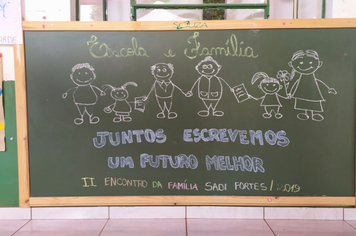 Escola e Família
JUNTOS ESCREVEMOS
UM FUTURO MELHOR
II ENCONTRO DA FAMÍLIA SADI FORTES / 2019